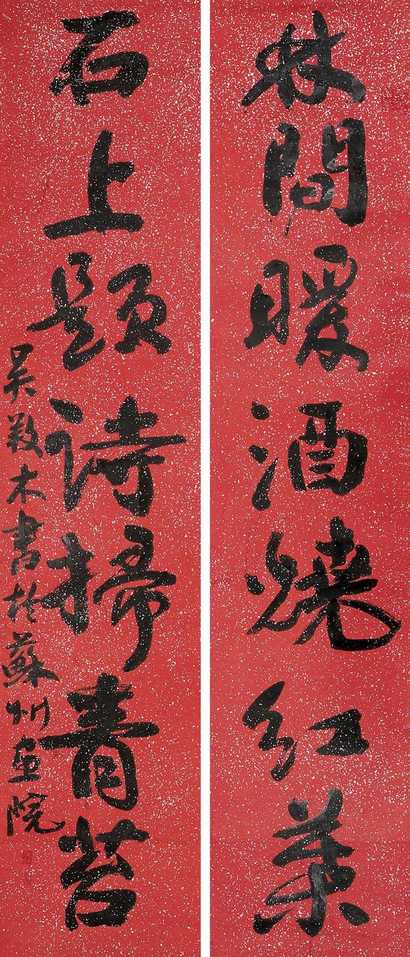 林間暖酒燒紅葉
石上題詩掃青苔
吴敦木書於蘇州画院